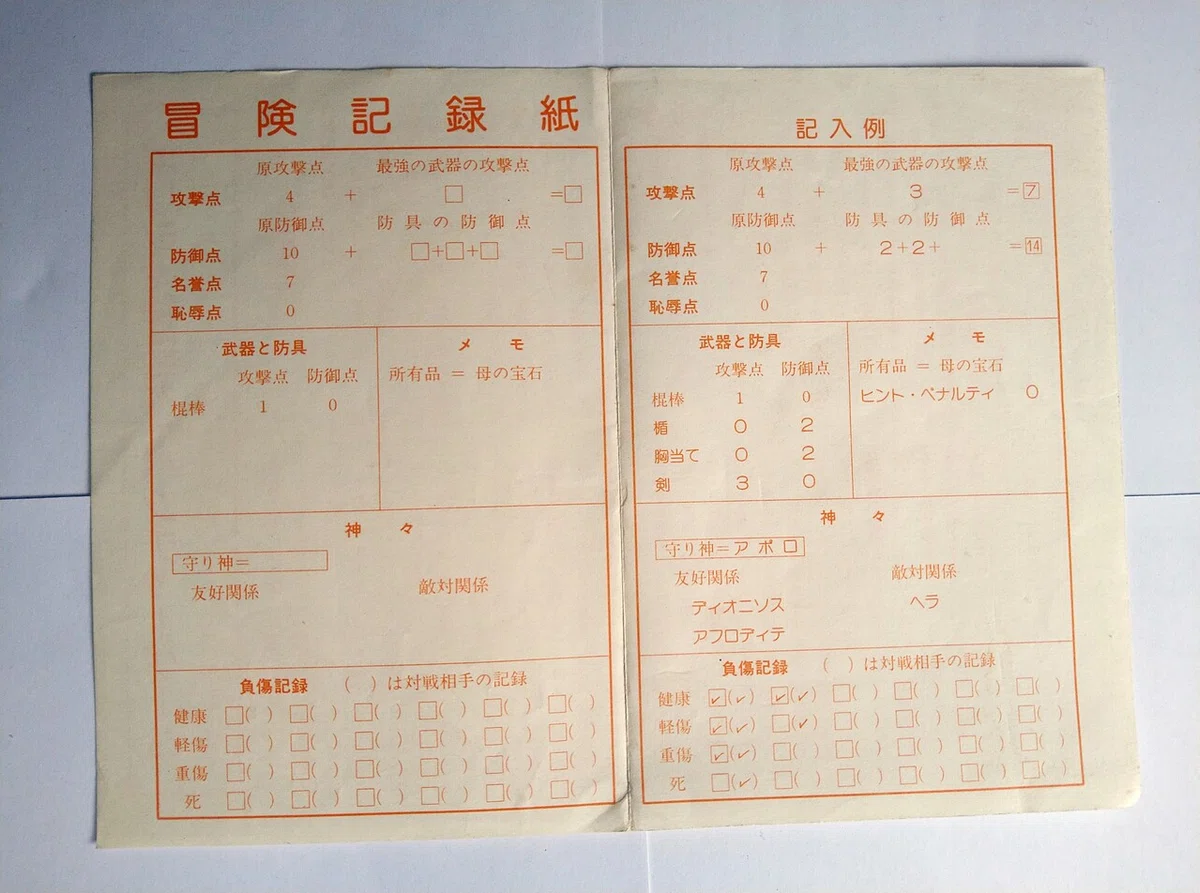 冒険記録紙
原攻撃点 最強の武器の攻撃点
攻撃点 4 + □ =□
原防御点 防具の防御点
防御点 10 + □+□+□ =□
名誉点 7
恥辱点 0
武器と防具
攻撃点 防御点
棍棒 1 0
メモ
所有品 = 母の宝石
神々
守り神=
友好関係 敵対関係
負傷記録 ( )は対戦相手の記録
健康 □( ) □( ) □( ) □( ) □( ) □( )
軽傷 □( ) □( ) □( ) □( ) □( ) □( )
重傷 □( ) □( ) □( ) □( ) □( ) □( )
死 □( ) □( ) □( ) □( ) □( ) □( )
記入例
原攻撃点 最強の武器の攻撃点
攻撃点 4 + 3 =7
原防御点 防具の防御点
防御点 10 + 2+2+ =14
名誉点 7
恥辱点 0
武器と防具
攻撃点 防御点
棍棒 1 0
楯 0 2
胸当て 0 2
剣 3 0
メモ
所有品 = 母の宝石
ヒント・ペナルティ 0
神々
守り神=アポロ
友好関係 敵対関係
ディオニソス ヘラ
アフロディテ
負傷記録 ( )は対戦相手の記録
健康 ☑(✓) ☑(✓) □( ) □( ) □( ) □( )
軽傷 ☑(✓) □(✓) □( ) □( ) □( ) □( )
重傷 ☑(✓) □( ) □( ) □( ) □( ) □( )
死 □(✓) □( ) □( ) □( ) □( ) □( )